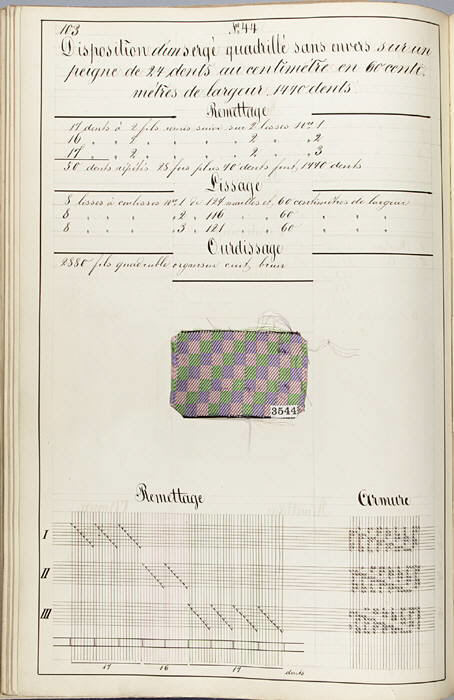 103
N.º 44
Disposition d'un sergé quadrillé sans envers sur un
peigne de 24 dents au centimètre en 60 centi-
mètres de largeur, 1440 dents
Remettage
17 dents à 2 fils suivi sur 2 lisses Nos 1
16 " " 2 " " " 2 " " 2
17 " " 2 " " " 2 " " 3
50 dents répétés 28 fois plus 40 dents font, 1440 dents
Lissage
8 lisses à Nº 1 de 124 mailles et 60 centimètres de largeur
8 " " " " 2 " 116 " " 60 " " "
8 " " " " 3 " 121 " " 60 " " "
Ourdissage
2880 fils organsin cuit,
3544
Remettage
Armure
I
II
III
17
16
17
dents